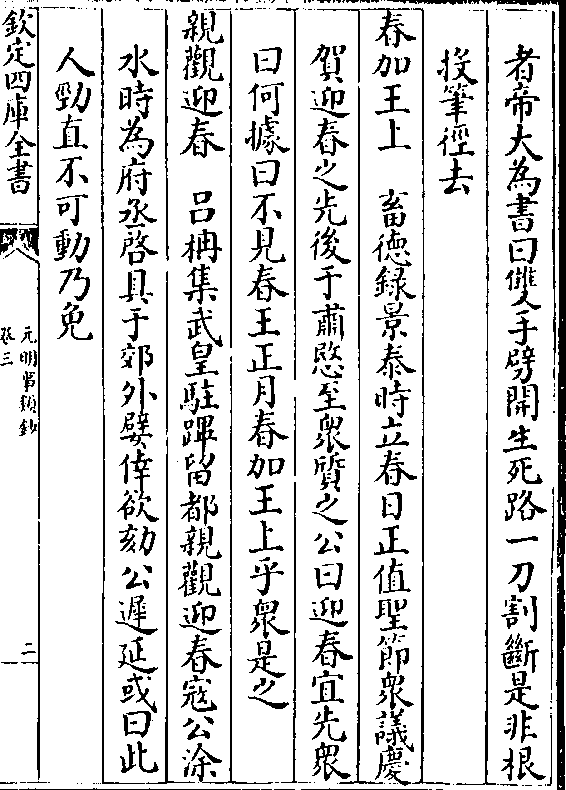 者帝大為書曰雙手劈開生死路一刀割斷是非根
投筆徑去
春加王上　畜德録景泰時立春日正值聖節衆議慶
賀迎春之先後于肅愍至衆質之公曰迎春宜先衆
曰何據曰不見春王正月春加王上乎衆是之
親觀迎春　呂柟集武皇駐蹕留都親觀迎春寇公涂
水時為府丞啓具于郊外嬖倖欲劾公遲延或曰此
人勁直不可動乃免
欽定四庫全書
元明事類鈔
卷三
二